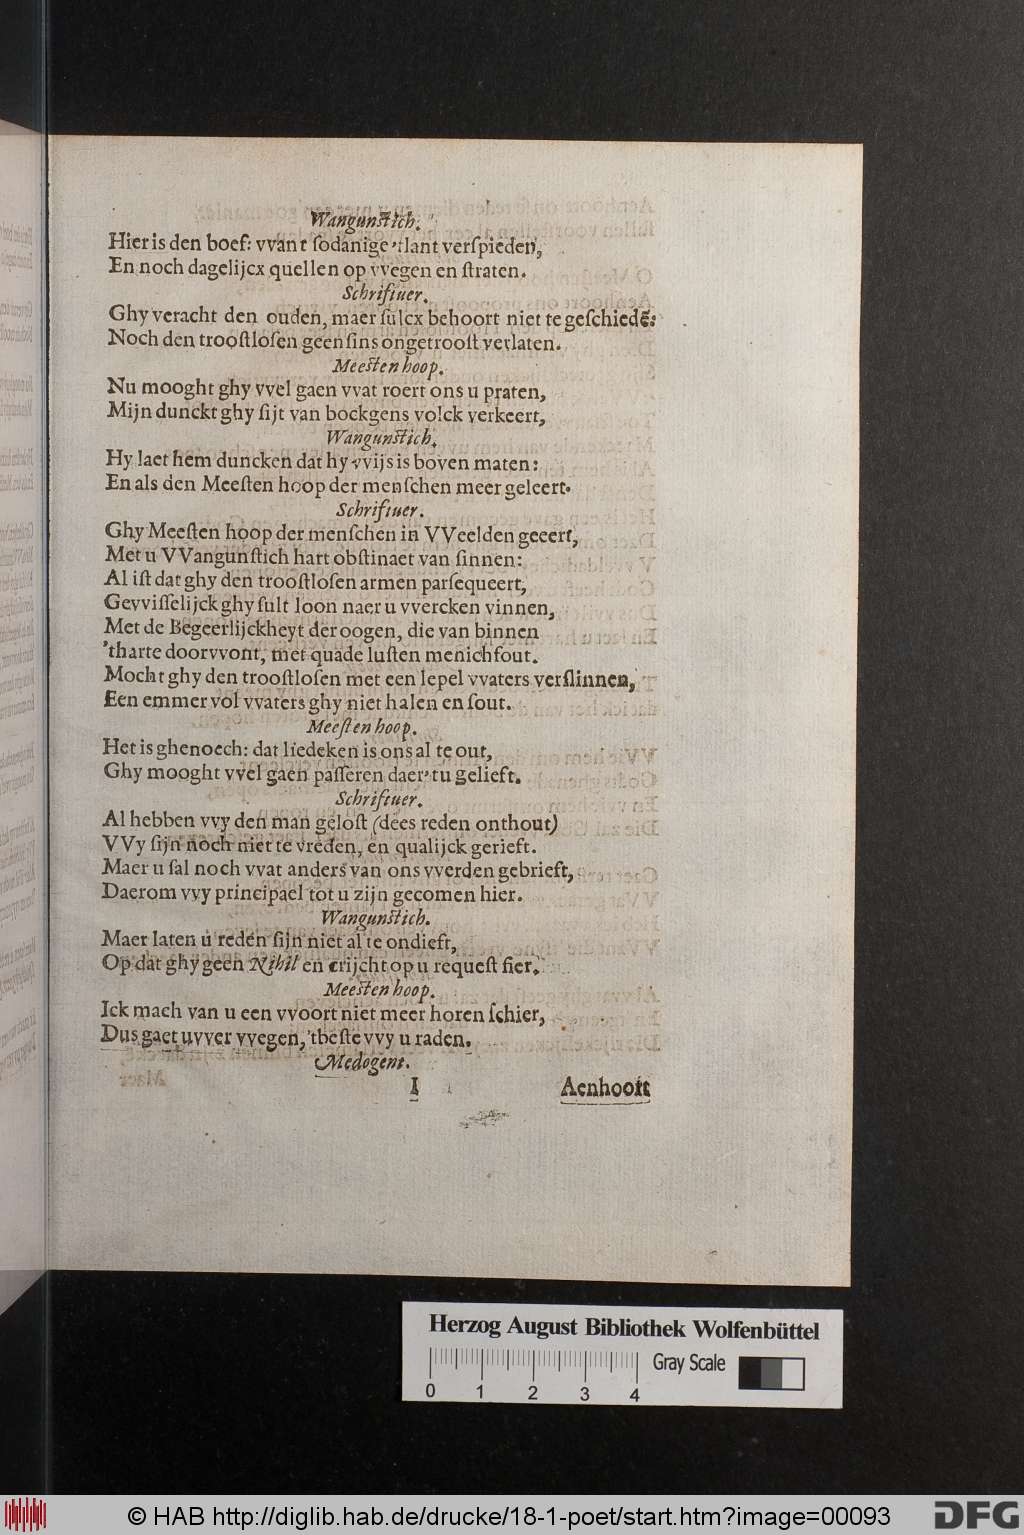 Wangunſtich.
Hier is den boef: vvant ſodanige 'tlant verſpieden,
En noch dagelijcx quellen op vvegen en ſtraten.
Schriftuer.
Ghy veracht den ouden, maer ſulcx behoort niet te geſchiedē:
Noch den trooſtloſen geenſins ongetrooſt verlaten.
Meeſten hoop.
Nu mooght ghy vvel gaen vvat roert ons u praten,
Mijn dunckt ghy ſijt van bockgens volck verkeert,
Wangunſtich.
Hy laet hem duncken dat hy vvijs is boven maten:
En als den Meeſten hoop der menſchen meer geleert.
Schriftuer.
Ghy Meeſten hoop der menſchen in VVeelden geeert,
Met u VVangunſtich hart obſtinaet van ſinnen:
Al iſt dat ghy den trooſtloſen armen parſequeert,
Gevviſſelijck ghy ſult loon naer u vvercken vinnen,
Met de Begeerlijckheyt der oogen, die van binnen
'tharte doorvvont, met quade luſten menichfout.
Mocht ghy den trooſtloſen met een lepel vvaters verſlinnen,
Een emmer vol vvaters ghy niet halen en ſout.
Meeſten hoop.
Het is ghenoech: dat liedeken is ons al te out,
Ghy mooght vvel gaen paſſeren daer 'tu gelieft.
Schriftuer.
Al hebben vvy den man geloſt (dees reden onthout)
VVy ſijn noch niet te vreden, en qualijck gerieft.
Maer u ſal noch vvat anders van ons vverden gebrieft,
Daerom vvy principael tot u zijn gecomen hier.
Wangunſtich.
Maer laten u reden ſijn niet al te ondieft,
Op dat ghy geen Nihil en crijcht op u requeſt fier.
Meeſten hoop.
Ick mach van u een vvoort niet meer horen ſchier,
Dus gaet uvver vvegen, 'tbeſte vvy u raden.
Medogent.
I
Aenhoort
Herzog August Bibliothek Wolfenbüttel
Gray Scale
0 1 2 3 4
© HAB http://diglib.hab.de/drucke/18-1-poet/start.htm?image=00093
DFG